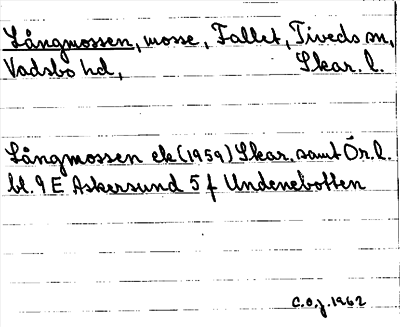 Långmossen, mosse, Fallet, Tiveds sn,
Vadsbo hd, Skar. l.
Långmossen ek (1959) Skar. samt Ör. l.
bl. 9 E Askersund 5 f Undenebotten
C.O.J. 1962